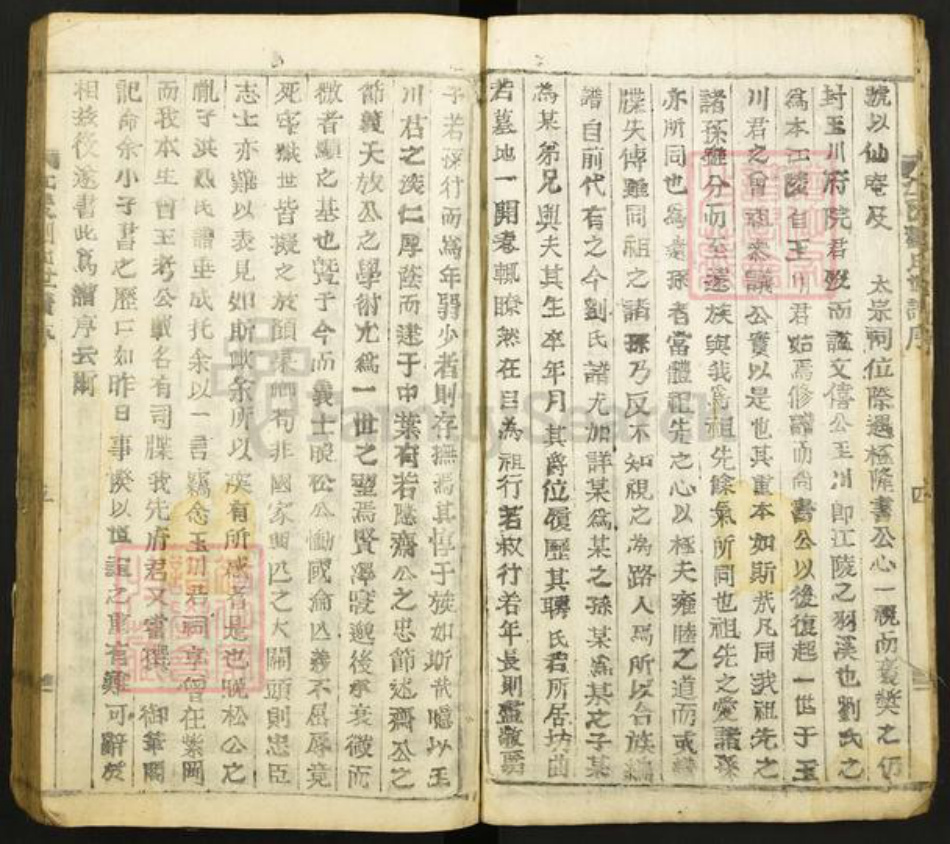 號以仙庵及 太宗祠位際遇極隆書公心一視而褒奬之仍
封玉川府院君歿而諡文僖公玉川卽江陵之羽溪也劉氏之
爲本江陵自玉川君始焉修譜而尚書公以後復起一世于玉
川君之曾祖參議公實以是也其重本如斯哉凡同我祖先之
諸孫雖分而至遠族與我爲祖先餘氣所同也祖先之愛諸孫
亦所同也爲遠孫者當體祖先之心以極夫雍睦之道而或
牒失傳雖同祖之諸孫乃反不知視之為路人焉所以合族
譜自前代有之今劉氏譜尤加詳某爲某之孫某爲某之子某
為某弟兄與夫其生卒年月其爵位履歷其聘氏若所居坊曲
若墓地一開卷輒瞭然在目為祖行若叔行若年長則盡敬焉
子若孫行而爲年弱少者則存撫焉其惇于族如斯哉噫以玉
川君之淡仁厚蔭而逮于中葉有若 齋公之忠節述齋公之
節義天放公之學術尤爲一世之 焉賢澤寢邈後承衰微而
微者顯之基也曁于今而義士晚松公慟國淪亡義不屈辱竟
死 獄世皆擬之於顔杲卿苟非國家興亡之大關頭則忠臣
志士亦難以表見如斯歟余所以深有所 者是也晚松公之
胤子淇 氏譜垂成托余以一言竊念玉川君祠享曾在紫岡
而我本生曾王考公載名有司牒我先府君又嘗撰 御筆閣
記命余小子書之歷曰如昨日事 以世誼之重有難可辭於
相 役遂書此爲譜序云爾